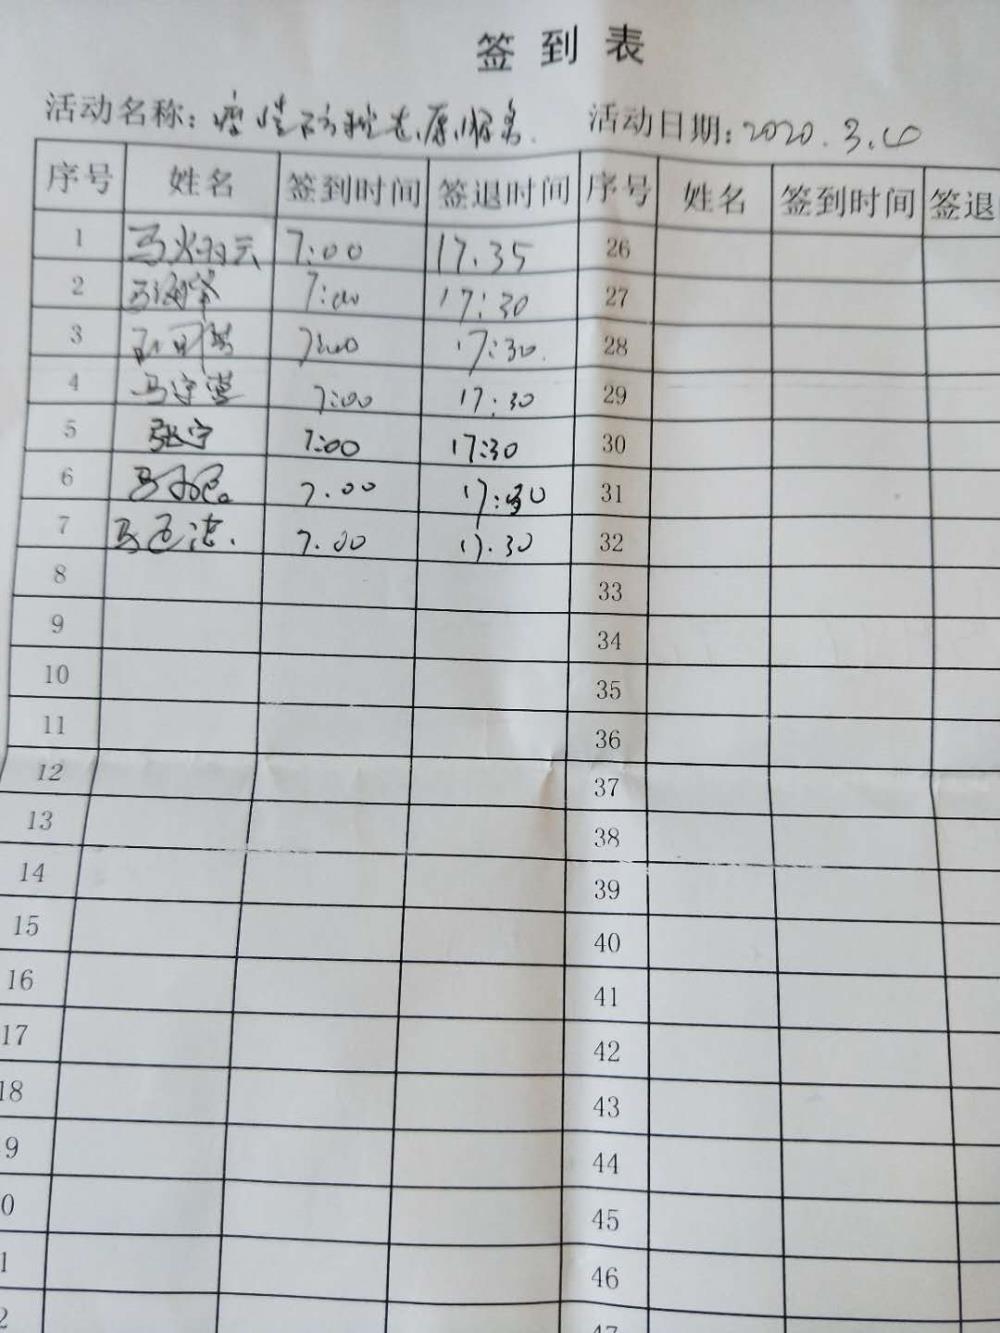 签到表
活动名称: 疫情防控志愿服务. 活动日期: 2020.3.10
序号 姓名 签到时间 签退时间 序号 姓名 签到时间 签退
1 7:00 17.35 26
2 7:00 17:30 27
3 7:00 17:30. 28
4 7:00 17:30 29
5 张宁 7:00 17:30 30
6 7.00 17:30 31
7 7.00 17.30 32
8 33
9 34
10 35
11 36
12 37
13 38
14 39
15 40
16 41
17 42
18 43
9 44
0 45
1 46
2 47